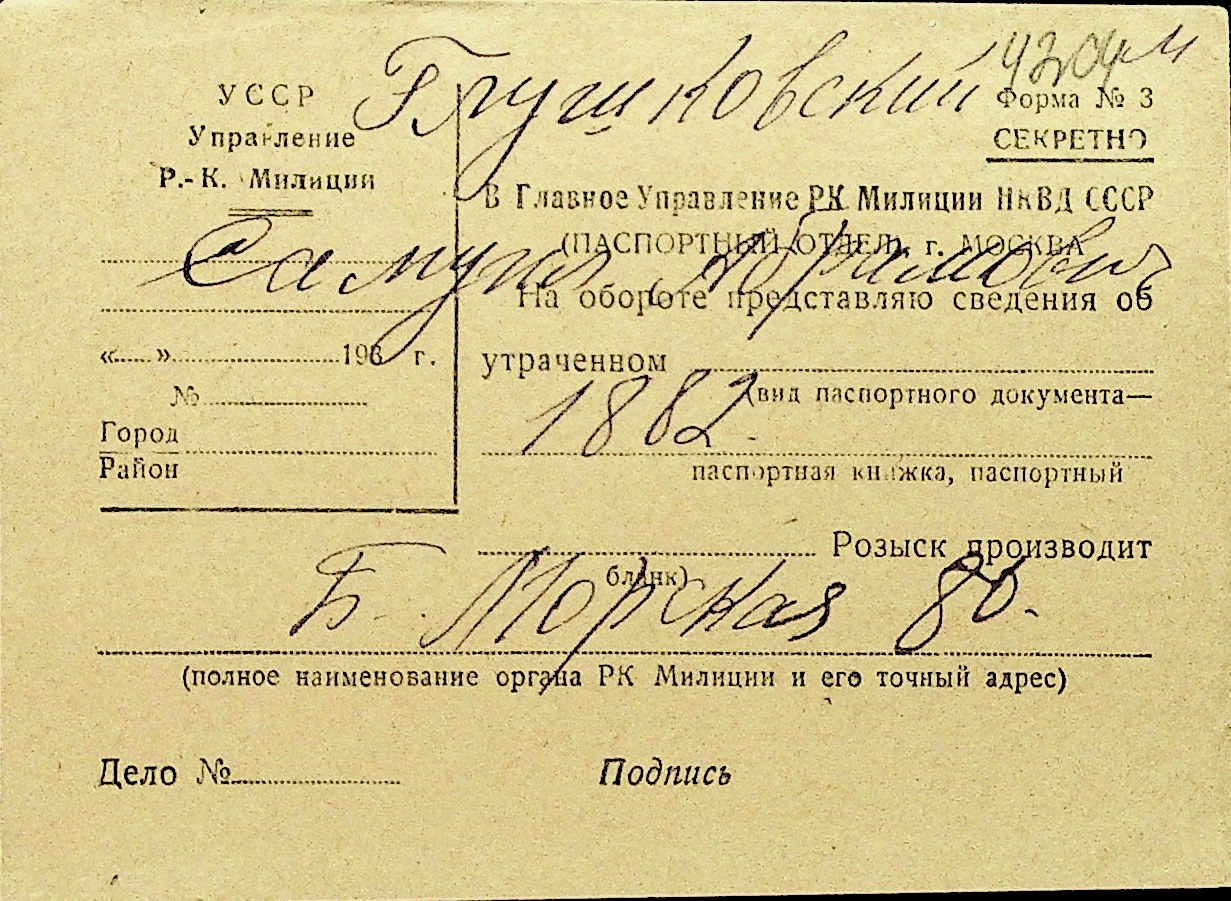 Глушковский 4204 м
УССР
Управление
Р.-К. Милиции
Форма № 3
СЕКРЕТНО
В Главное Управление РК Милиции НКВД СССР
(ПАСПОРТНЫЙ ОТДЕЛ), г. МОСКВА
Самуил Абрамович
На обороте представляю сведения об
«.....»..................193 г.
утраченном
№
(вид паспортного документа—
1882.
Город
Район
паспортная книжка, паспортный
Розыск производит
бланк)
Б. Морская 80.
(полное наименование органа РК Милиции и его точный адрес)
Дело № Подпись